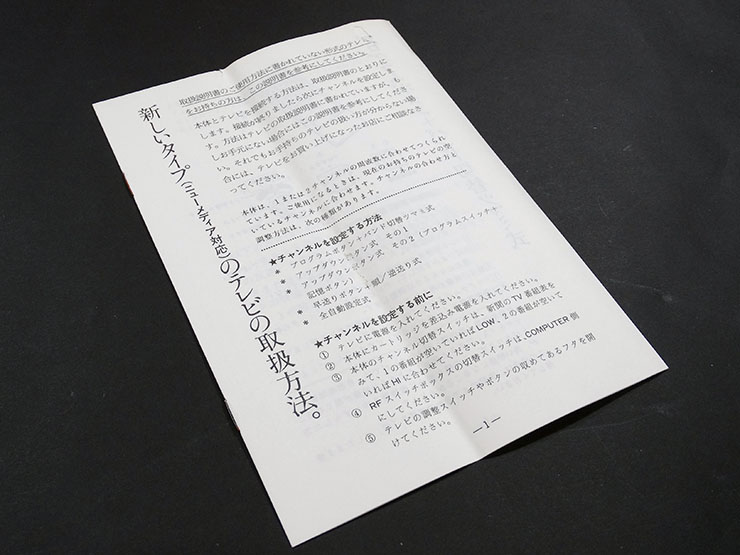 取扱説明書のご使用方法に書かれていない形式のテレビ
をお持ちの方は、この説明書を参考にしてください。
新しいタイプ(ニューメディア対応)のテレビの取扱方法。
本体とテレビを接続する方法は、取扱説明書のとおりに
します。接続が終りましたら次にチャンネルを設定しま
す。方法はテレビの取扱説明書に書かれていますが、も
しお手元にない場合にはこの説明書を参考にしてくださ
い。それでもお手持ちのテレビの扱い方が分からない場
合には、テレビをお買い上げになったお店にご相談なさ
ってください。
本体は、1または2チャンネルの周波数に合わせてつくられ
ています。ご使用になるときは、現在のお持ちのテレビの空
いているチャンネルに合わせます。チャンネルの合わせ方と
調整方法は、次の種類があります。
★チャンネルを設定する方法
* プログラムボタン+バンド切替ツマミ式
* アップダウンボタン式 その1
* アップダウンボタン式 その2(プログラムスイッチ+
記憶ボタン)
* 早送りボタン 順/逆送り式
* 全自動設定式
★チャンネルを設定する前に
① テレビに電源を入れてください。
② 本体にカートリッジを差込み電源を入れてください。
③ 本体のチャンネル切替スイッチは、新聞のTV番組表を
みて、1の番組が空いていればLOW、2の番組が空いて
いればHIに合わせてください。
④ RFスイッチボックスの切替スイッチは、COMPUTER側
にしてください。
⑤ テレビの調整スイッチやボタンの収めてあるフタを開
けてください。
—1—